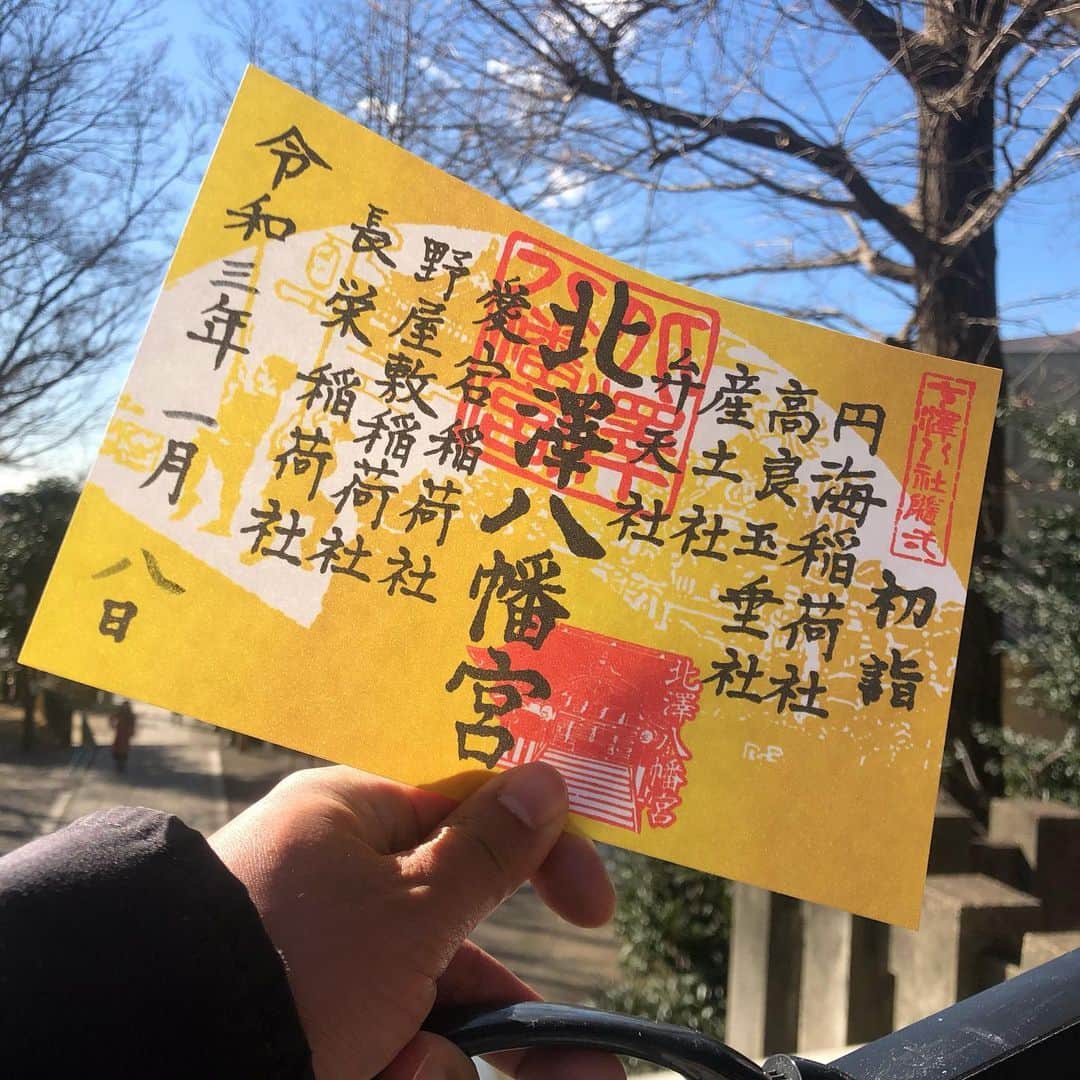 初詣
円海稲荷社
高良玉垂社
産土社
弁天社
北澤八幡宮
愛宕稲荷社
野屋敷稲荷社
長栄稲荷社
令和三年 一月 八日
北澤八幡宮